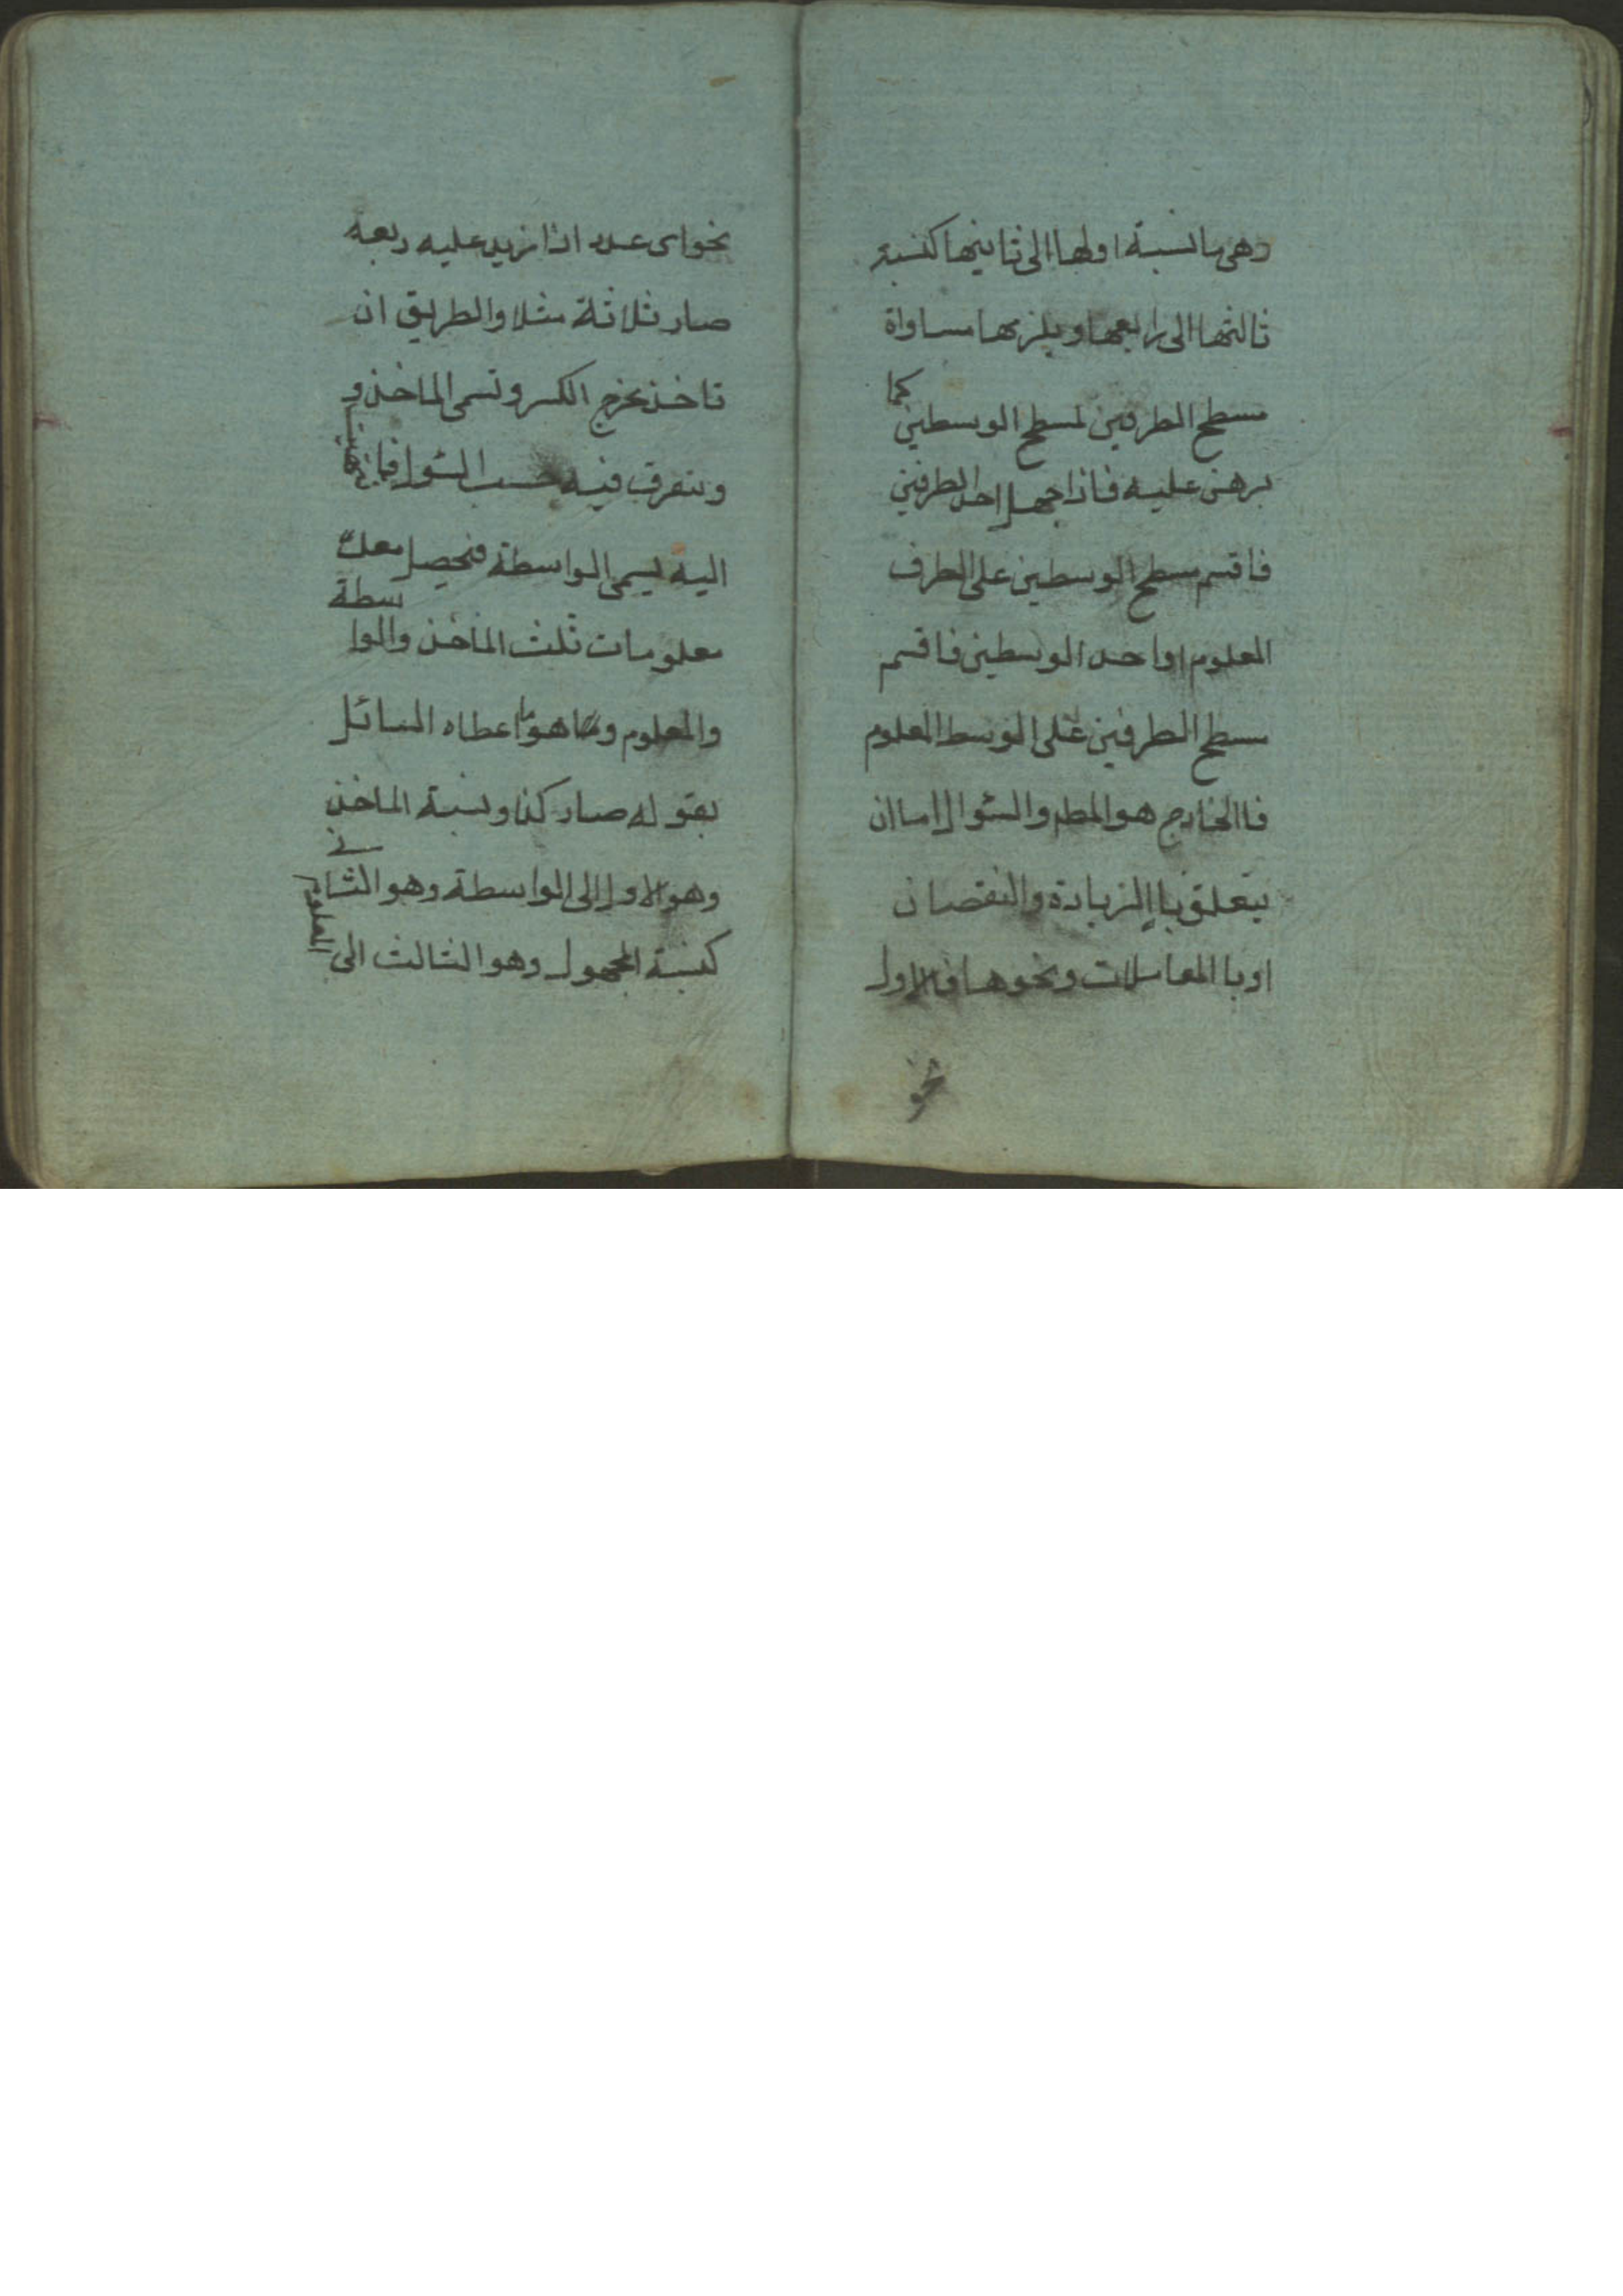 وهى ما نسبة اولها الى ثانيها كنسبة
ثالثها الى رابعها ويلزمها مساواة
مسطح الطرفين لمسطح الوسطين كما
برهن عليه فاذا جهل احد الطرفين
فاقسم مسطح الوسطين على الطرف
المعلوم او احد الوسطين فاقسم
سطح الطرفين على الوسط المعلوم
فاالخارج هو المطم والسئوال اما ان
يتعلق باالزيادة والنقصان
اوبا المعاملات ونحوها فالاول
نحو
نحو اى عدد اذا زيد عليه ربعه
صار ثلاثة مثلا والطريق ان
تاخذ مخرج الكسر وتسمى الماخذ و
وتتصرف فيه حسب السئوال فما انتهيت
اليه يسمى الواسطة فيحصل معك
معلومات ثلث الماخذ والواسطة
والمعلوم وهو ما اعطاه السائل
بقوله صار كذا ونسبة الماخذ
وهو الاول الى الواسطة وهو الثانى
كنسبة المجهول وهو الثالث الى المعلوم